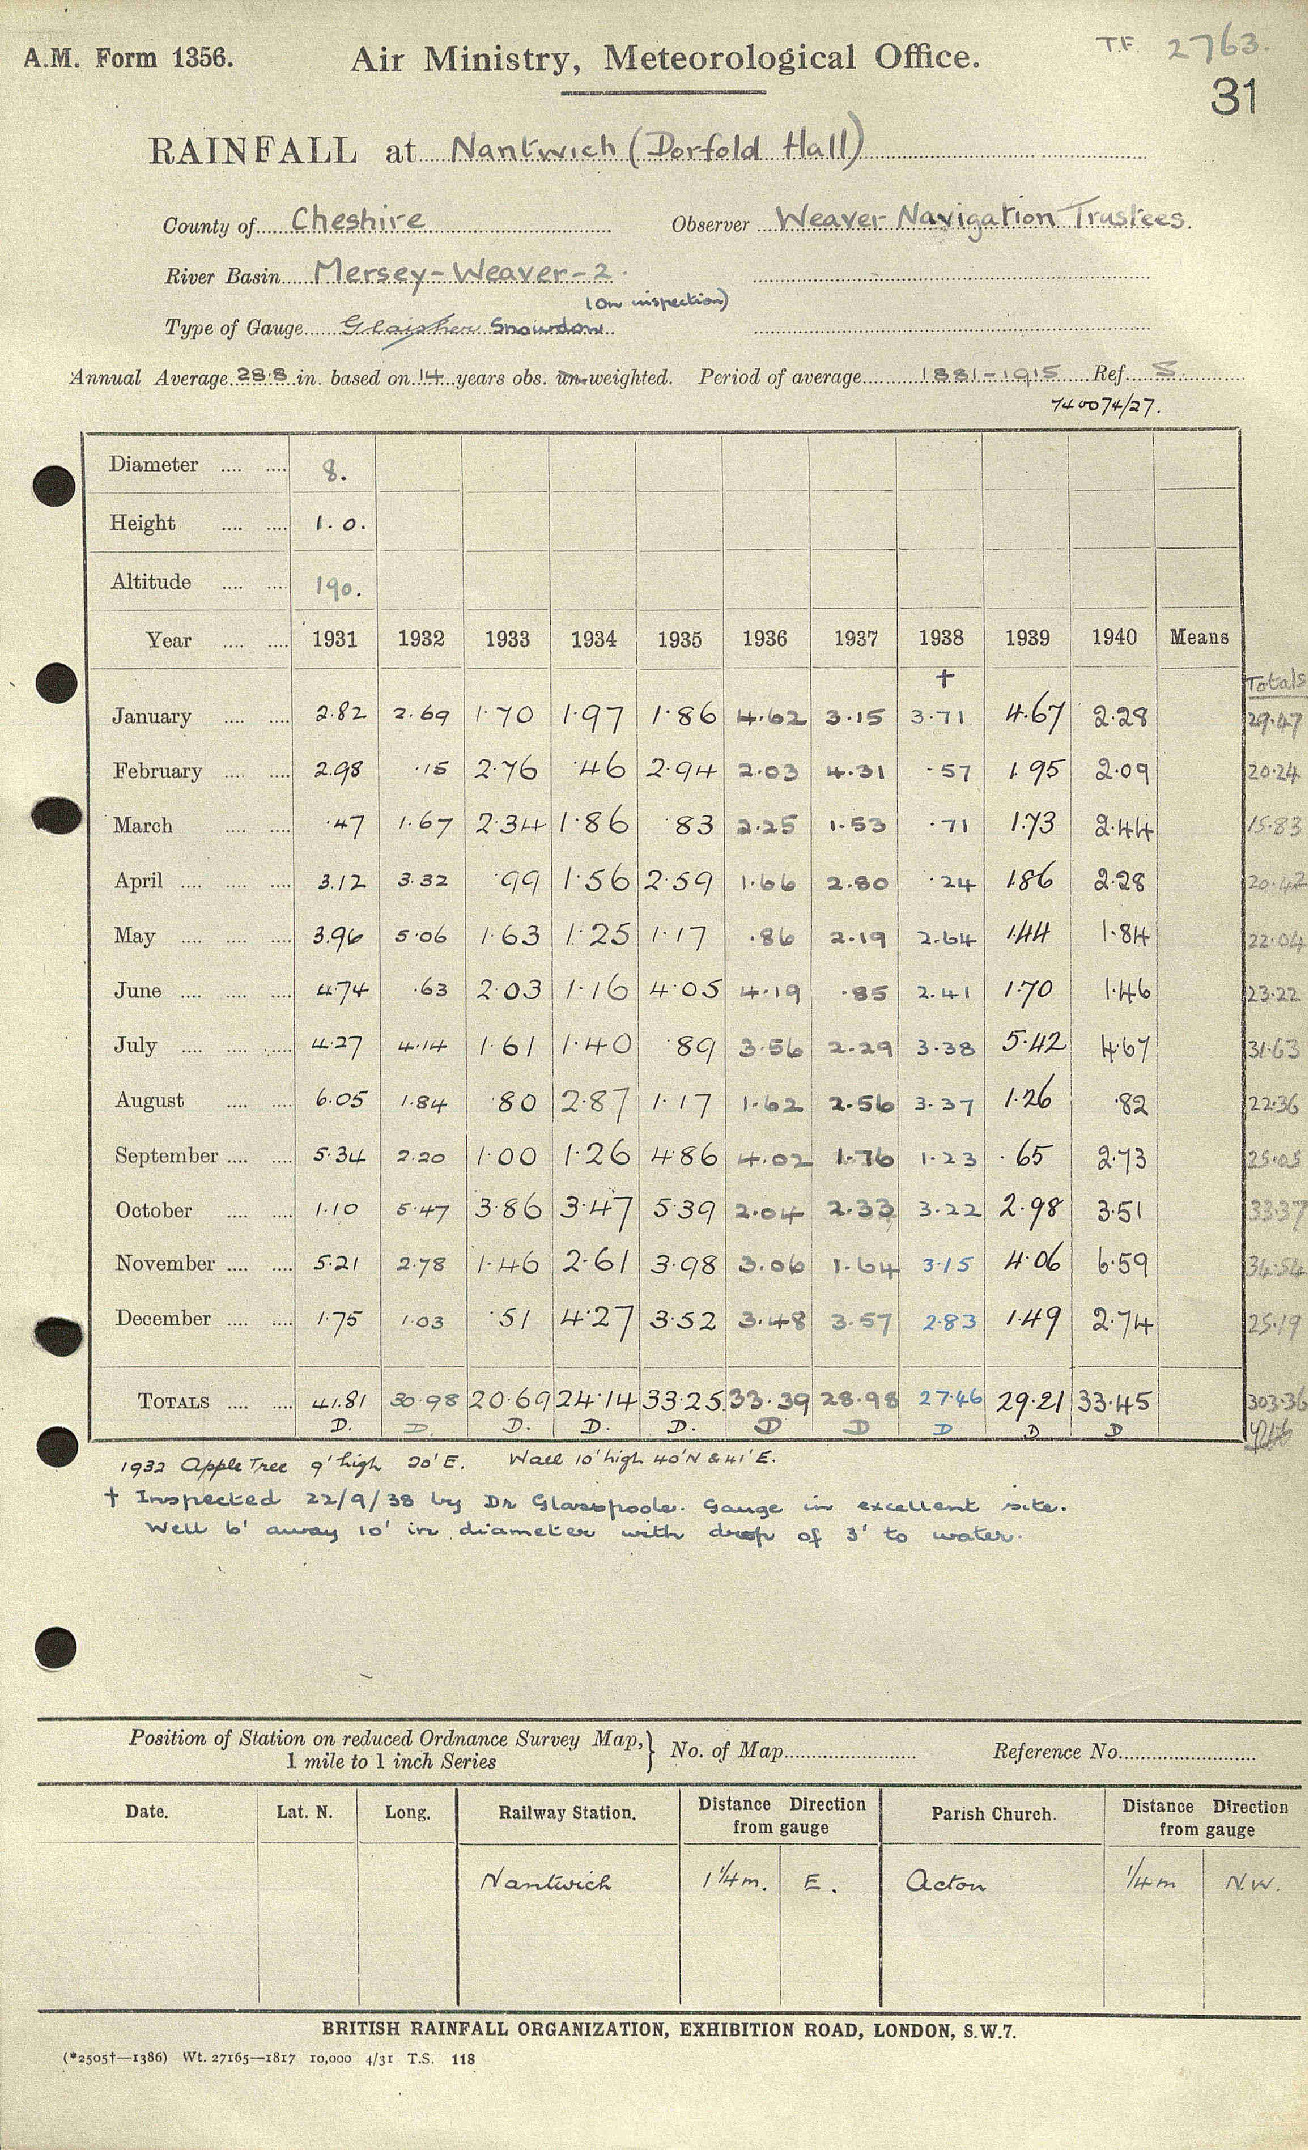 A.M. Form 1356. Air Ministry, Meteorological Office. T.F. 2763.
31
RAINFALL at Nantwich (Dorfold Hall)
County of Cheshire Observer Weaver Navigation Trustees.
River Basin Mersey-Weaver-2.
(on inspection)
Type of Gauge Glaisher Snowdon
Annual Average 28.8 in. based on 14 years obs. un-weighted. Period of average 1881-1915 Ref. S
740074/27.
Diameter .... .... 8.
Height .... .... 1.0.
Altitude .... .... 190.
Year .... .... 1931 1932 1933 1934 1935 1936 1937 1938 1939 1940 Means
† Totals
January .... .... 2.82 2.69 1.70 1.97 1.86 4.62 3.15 3.71 4.67 2.28 29.47
February .... .... 2.98 .15 2.76 .46 2.94 2.03 4.31 .57 1.95 2.09 20.24
March .... .... .47 1.67 2.34 1.86 .83 2.25 1.53 .71 1.73 2.44 15.83
April .... .... .... 3.12 3.32 .99 1.56 2.59 1.66 2.80 .24 1.86 2.28 20.42
May .... .... .... 3.96 5.06 1.63 1.25 1.17 .86 2.19 2.64 1.44 1.84 22.04
June .... .... .... 4.74 .63 2.03 1.16 4.05 4.19 .85 2.41 1.70 1.46 23.22
July .... .... .... 4.27 4.14 1.61 1.40 .89 3.56 2.29 3.38 5.42 4.67 31.63
August .... .... 6.05 1.84 .80 2.87 1.17 1.62 2.56 3.37 1.26 .82 22.36
September .... .... 5.34 2.20 1.00 1.26 4.86 4.02 1.76 1.23 .65 2.73 25.05
October .... .... 1.10 5.47 3.86 3.47 5.39 2.04 2.33 3.22 2.98 3.51 33.37
November .... .... 5.21 2.78 1.46 2.61 3.98 3.06 1.64 3.15 4.06 6.59 34.54
December .... .... 1.75 1.03 .51 4.27 3.52 3.48 3.57 2.83 1.49 2.74 25.19
TOTALS .... .... 41.81 30.98 20.69 24.14 33.25 33.39 28.98 27.46 29.21 33.45 303.36
D. D. D. D. D. D D D D D
1932 Apple Tree 9' high 20' E. Wall 10' high 40' N & 41' E.
† Inspected 22/9/38 by Dr Glasspoole. Gauge in excellent site.
Well 6' away 10' in diameter with drop of 3' to water.
Position of Station on reduced Ordnance Survey Map, } No. of Map Reference No.
1 mile to 1 inch Series
Date. Lat. N. Long. Railway Station. Distance Direction from gauge Parish Church. Distance Direction from gauge
Nantwich 1¼m. E. Acton ¼m N.W.
BRITISH RAINFALL ORGANIZATION, EXHIBITION ROAD, LONDON, S.W.7.
(*2505†—1386) Wt. 27165—1817 10,000 4/31 T.S. 118